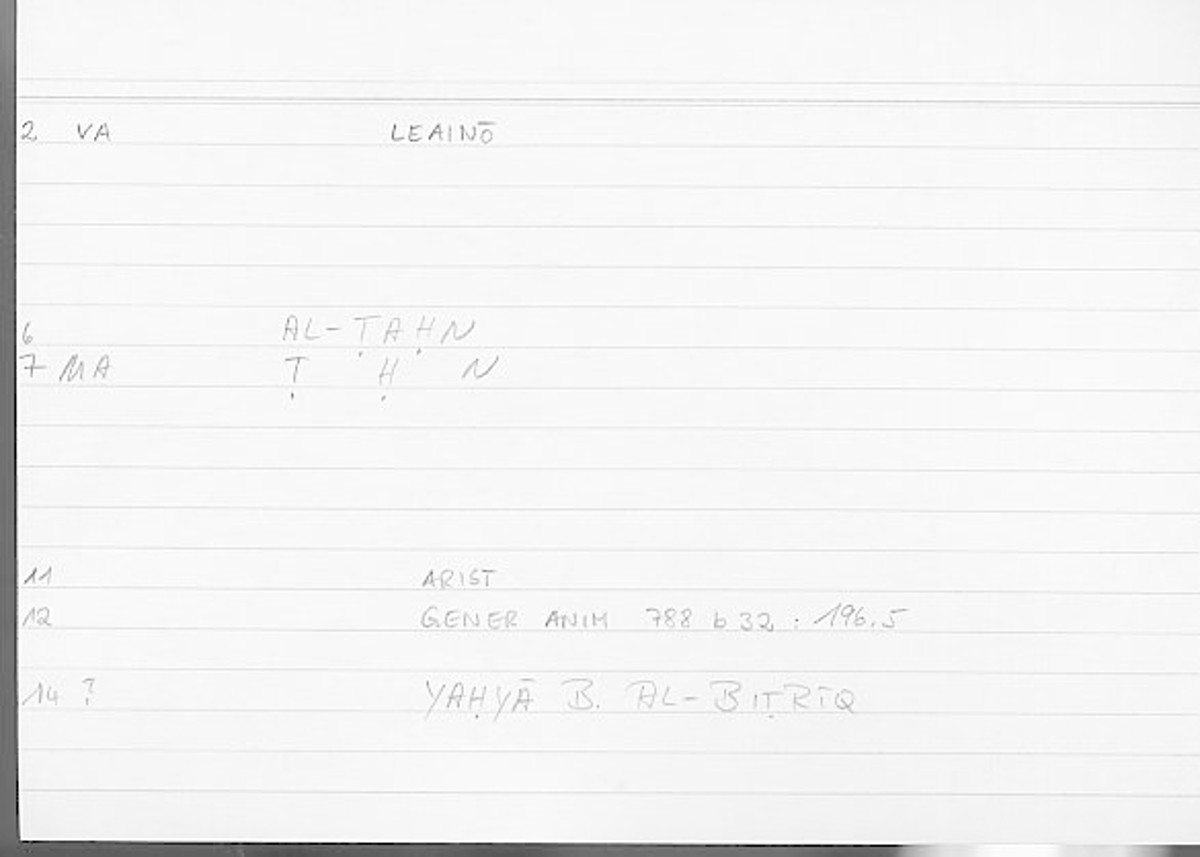 2 VA LEAINŌ
6 AL-ṬAḤN
7 MA Ṭ Ḥ N
11 ARIST
12 GENER ANIM 788 b 32 : 196.5
14 ? YAḤYĀ B. AL-BIṬRĪQ